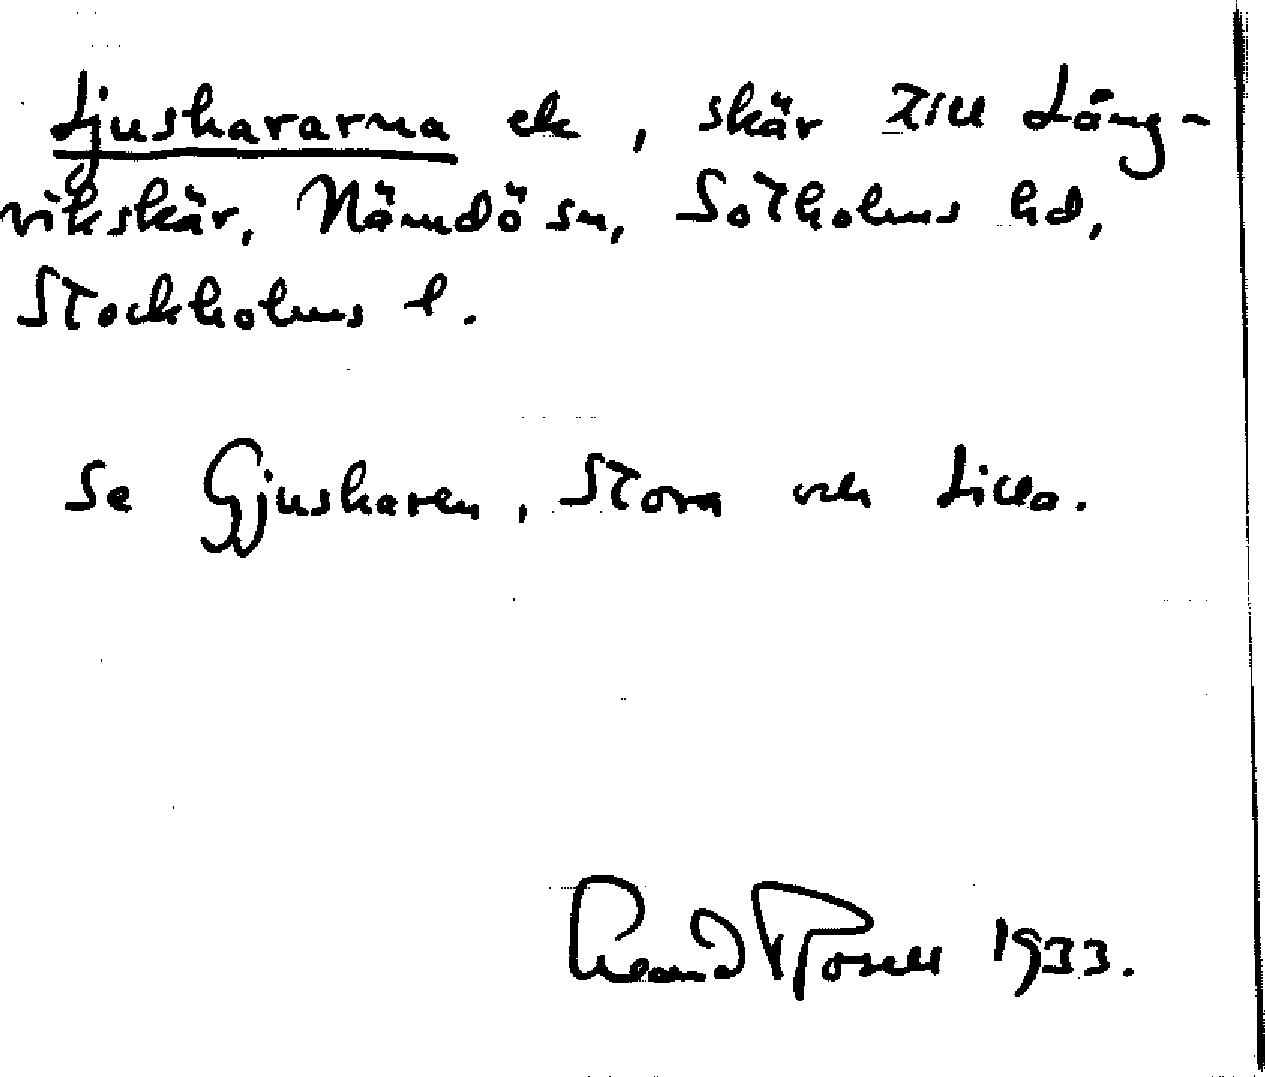 Ljuskararna ek, skär till Lång-
vikskär, Nämdö sn, Sotholms hd,
Stockholms l.
Se Gjuskaren, Stora och Lilla.
1933.